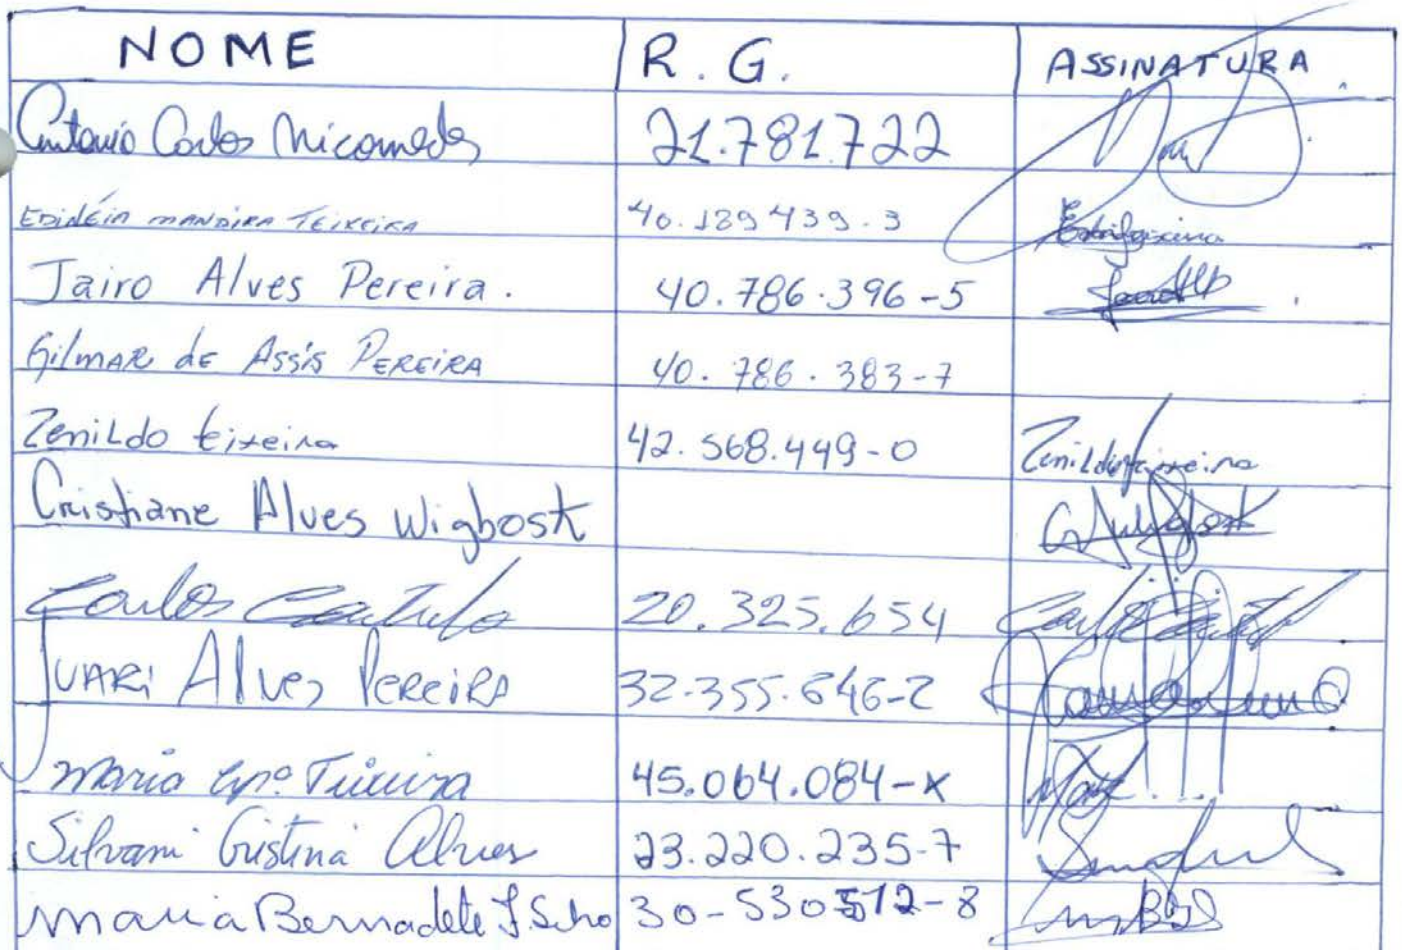 NOME R.G. ASSINATURA
Antonio Carlos Nicomedes 21.781.722
EDINÉIA MANDIRA TEIXEIRA 40.129439-3
Jairo Alves Pereira. 40.786.396-5
Gilmar de Assis Pereira 40.786.383-7
Zenildo teixeira 42.568.449-0 Zenildo teixeira
Cristiane Alves Wigbost
Carlos 20.325.654 Carlos
JUARI Alves Pereira 32-355.646-2
Maria Apª Teixeira 45.064.084-X
Silvani Cristina Alves 23.220.235-7
Maria Bernadete 30-530512-8